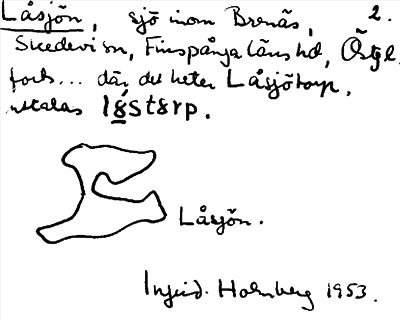 Låsjön, sjö inom Brenäs, 2.
Skedevi sn, Finspånga läns hd, Östgl.
forts... där det heter Låsjötorp,
uttalas
Låsjön.
Ingrid. Holmberg 1953.